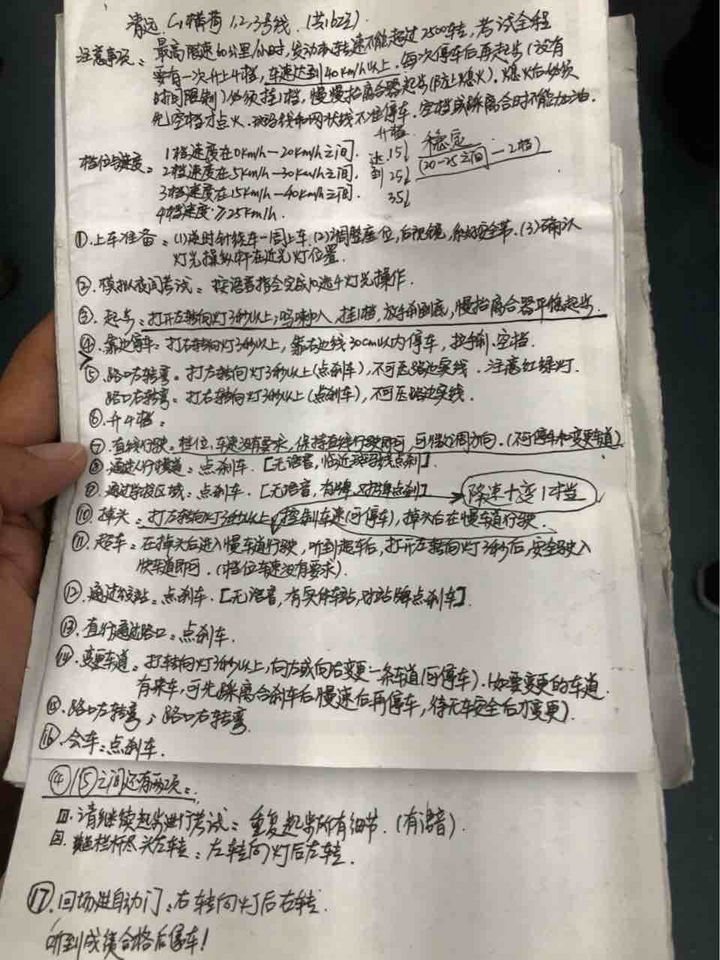 清远.C1横荷1,2,3号线.(共16项).
注意事项:最高限速60公里/小时,发动机转速不能超过2500转,考试全程
要有一次升上4档,车速达到40km/h以上.每次停车后再起步(没有
时间限制)必须挂1档,慢慢抬离合器起步(防止熄火).熄火后必须
先空档才点火.斑马线和网状线不准停车.空档或踩离合时不能加油.
档位与速度:1档速度在0km/h—20km/h之间.
2档速度在5km/h—30km/h之间.
3档速度在15km/h—40km/h之间.
4档速度≥25km/h.
升档
达到
15↓
25↓
35↓
稳定
(20-25之间—2档)
①.上车准备:(1)逆时针绕车一周上车.(2)调整座位,后视镜,系好安全带.(3)确认
灯光操纵杆在近光灯位置.
②.模拟夜间考试:按语音指令完成灯光操作.
③.起步:打开左转向灯3秒以上,鸣喇叭,挂1档,放手刹到底,慢抬离合器平稳起步.
④.靠边停车:打右转向灯3秒以上,靠右边线30cm以内停车,拉手刹.空档.
⑤.路口左转弯.打左转向灯3秒以上(点刹车),不可压路边实线.注意红绿灯.
路口右转弯:打右转向灯3秒以上(点刹车),不可压路边实线.
⑥.升4档:
⑦.直线行驶.档位、车速没有要求,保持直线行驶即可,可微调方向.(不可停车和变更车道)
⑧.通过人行横道:点刹车.[无语音,临近斑马线点刹].
⑨.通过学校区域:点刹车.[无语音,有牌,对牌点刹]
降速十送1档
⑩.掉头:打左转向灯3秒以上,控制车速(可停车),掉头后在慢车道行驶.
⑪.超车:在掉头后进入慢车道行驶,听到超车后,打开左转向灯3秒后,安全驶入
快车道即可.(档位车速没有要求).
⑫.通过校站:点刹车.[无语音,有公休车站,对站牌点刹车].
⑬.直行通过路口:点刹车.
⑭.变更车道.打转向灯3秒以上,向左或向右变更一条车道(可停车).(如要变更的车道
有来车,可先踩离合刹车后慢速后再停车,待无车安全后才变更).
⑮.路口左转弯;路口右转弯
⑯.会车:点刹车.
④/⑤之间还有两项:
请继续起步进行考试:重复起步所有细节.(有语音).
栏杆尽头左转:左转向灯后左转.
⑰.回场进自动门:右转向灯后右转.
听到成绩合格后停车!